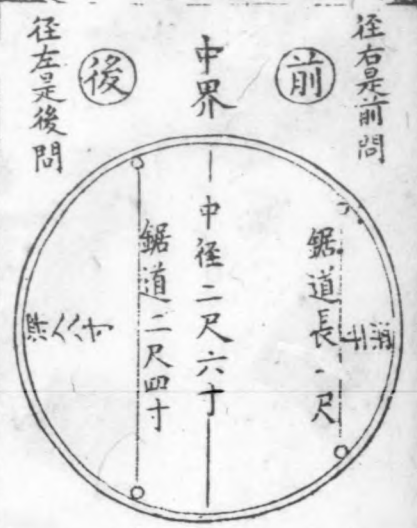 径右是前問
前
中界
後
径左是後問
鋸道長一尺
中径二尺六寸
鋸道二尺四寸